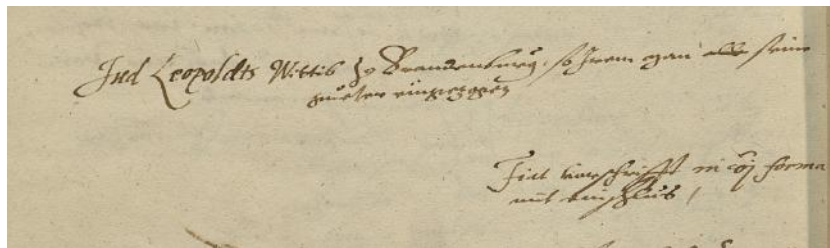 Jud Leopoldts Wittib Zu Brandenburg, so Irem man alle seine
gueter eingezogen
Fiat vorschrifft in cõi forma
mit einschlus /